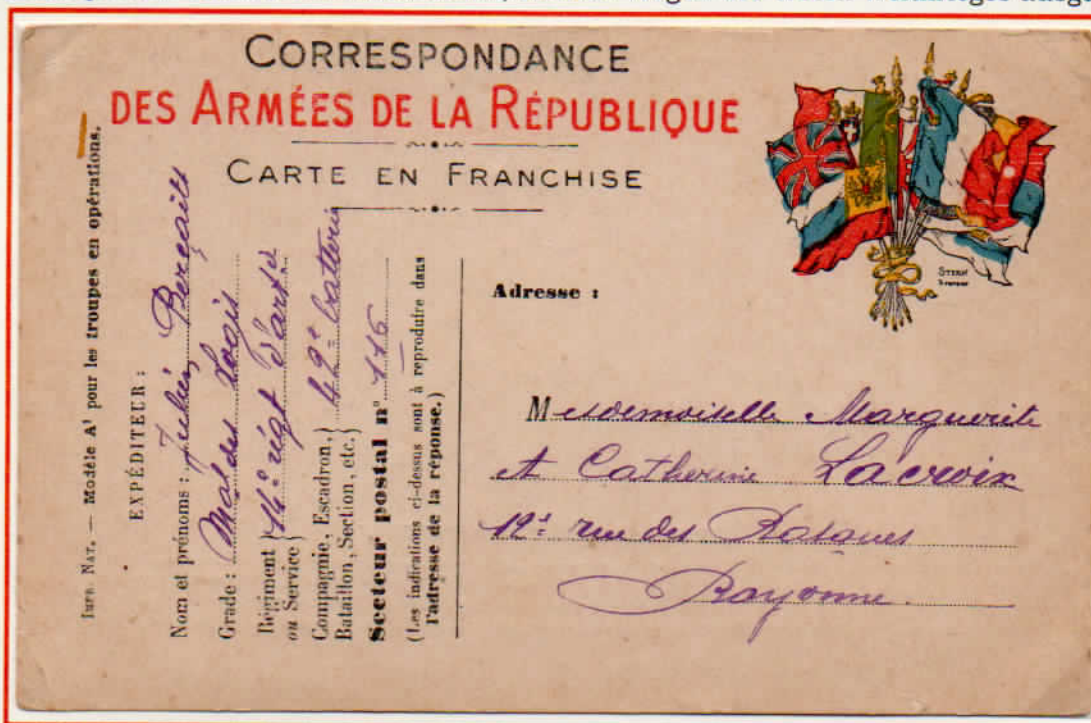 CORRESPONDANCE
DES ARMÉES DE LA RÉPUBLIQUE
CARTE EN FRANCHISE
IMP. NAT. — Modèle A¹ pour les troupes en opérations.
EXPÉDITEUR :
Nom et prénoms : Julien
Grade : Mal des Logis
Régiment ou Service } 14e régt d'art
Compagnie, Escadron, Bataillon, Section, etc. } 49e batterie
Secteur postal n° 116
(Les indications ci-dessus sont à reproduire dans
l'adresse de la réponse.)
STERN
Adresse :
Mesdemoiselle Marguerite
et Catherine Lacroix
rue des Basques
Bayonne